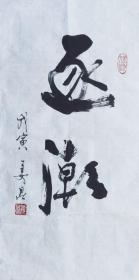 逐潮
戊寅 姜昆